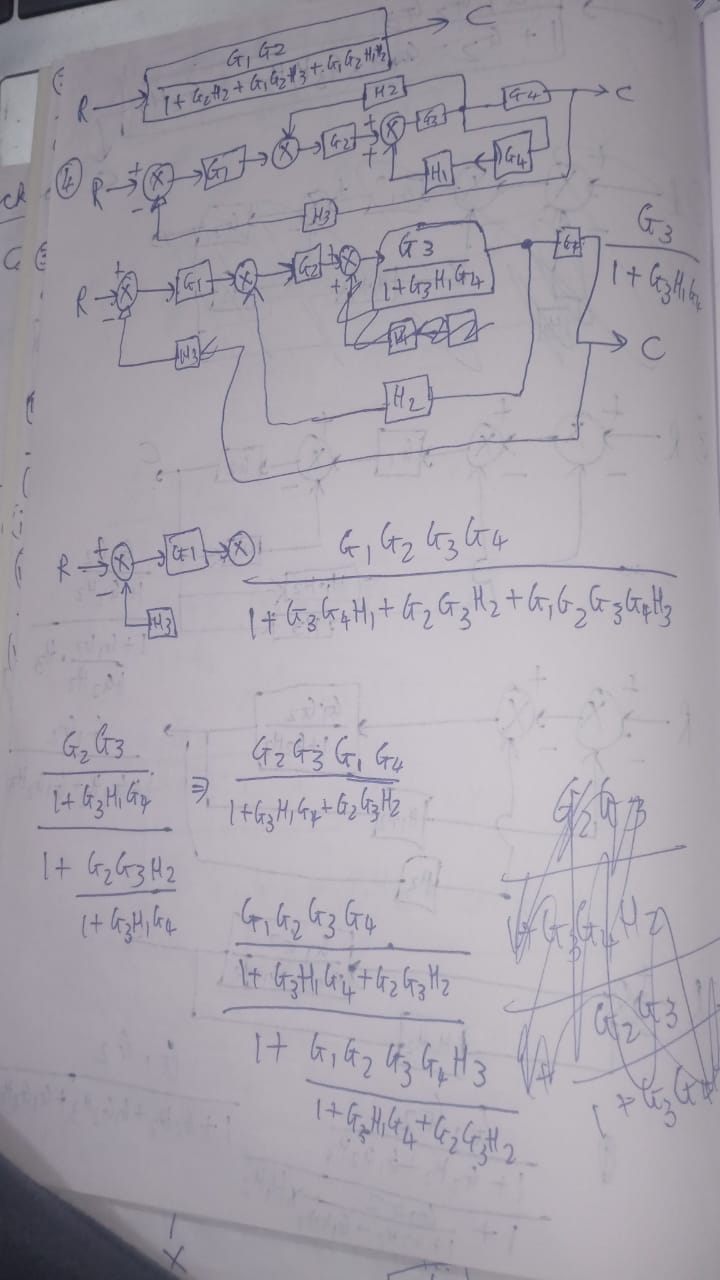 G₁G₂ → C
R → 1+G₂H₂+G₁G₂H₃+G₁G₂H₁H₂
④ R + - X G₁ X G₂ + + X G₃ G4 → C
H2
H₁ G4
H3
R + - X G₁ X G₂ + + X G3 / 1+G₃H₁G4
G3 / 1+G₃H₁G4
H3
H₂
C
R + - X G1 X
H3
G₁G₂G₃G4
1+G₃G₄H₁+G₂G₃H₂+G₁G₂G₃G4H₃
G₂G3 / 1+G₃H₁G4 ⇒ G₂G3G₁G4 / 1+G₃H₁G4+G₂G₃H₂
1+ G₂G₃H₂ / 1+G₃H₁G4
G₁G₂G₃G4
1+G₃H₁G4+G₂G₃H₂
1+ G₁G₂G₃G4H₃
1+G₃H₁G4+G₂G₃H₂
G₂G3
1+G₃G4